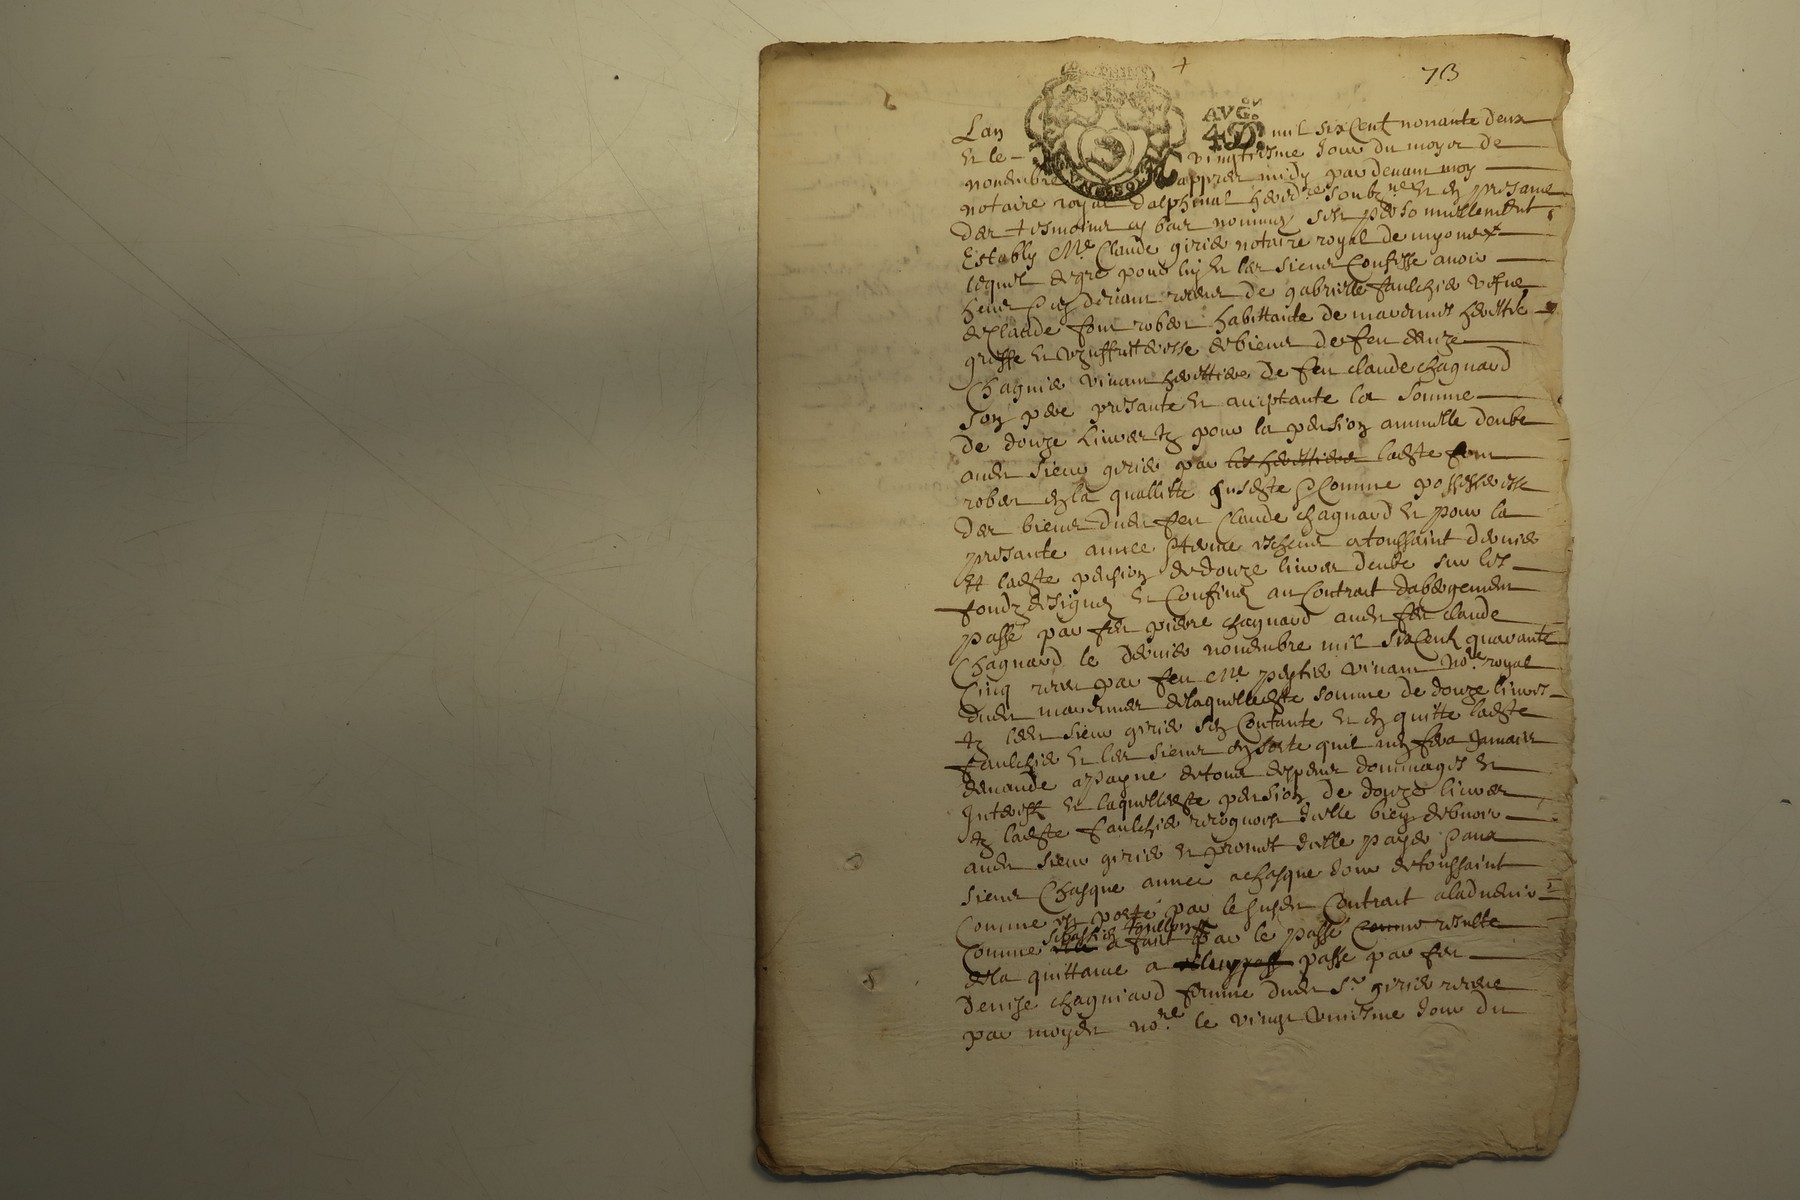 73
AVG.on
4 D.
Lan mil six Cent nonante deux
Et le vingtiesme Jour du moys de
nouembre appres midy par deuant moy
notaire royal dalphinal heredre soubzne et en presance
des tesmoins cy bas nommes sest personnellement
Estably Me Claude girie notaire royal de
lequel de gre pour luy et les siens Confesse auoir
heu de gabrielle faulchie vefue
de Claude robert habittante de
et vzuffruicteresse des biens de feu
Chagnie viuant herittier de feu claude chagnard
Son pere presante et acceptante la somme
de douze liures tz pour la pension annuelle deube
audt sieur girie par les herittiers ladte
robert en la quallitte susdte Comme possesseresse
des biens dudt feu Claude chagnard et pour la
presante annee escheue a toussaint dernier
Et ladte pension de douze liures deube sur les
fondz designes et Confines au Contrait dabergement
passe par feu pierre chagnard audt feu claude
Chagnard le dernier nouembre mil six Cent quarante
Cinq receu par feu Me viuant nore royal
dudt de laquelledte somme de douze liures
tz ledt sieur girie sen Contante et en quitte ladte
faulchie et les siens en sorte quil nen fera Jamais
demande a payne de tous despens dommages et
Interestz et laquelledte pension de douze liures
tz ladte faulchie recognoist Icelle bien debuoir
audt sieur girie et promet Icelle payer
siens Chasque annee a chasque Jour de toussaint
Comme est porte par le susdt Contrait aladuenir
Comme a fait par le passe Comme resulte
de la quittance a passe par feu
Denise chagniard femme dudt Sr girie receue
par moydt nore le vingt Jour du